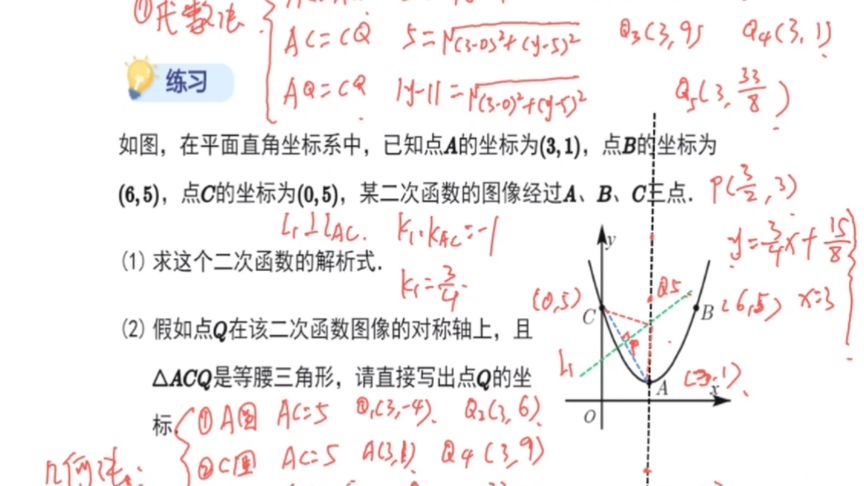 ①代数法
AC=CQ 5=√(3-0)²+(y-5)² Q₃(3,9) Q₄(3,1)
练习
AQ=CQ |y-1|=√(3-0)²+(y-5)² Q₅(3,33/8)
如图，在平面直角坐标系中，已知点A的坐标为(3,1)，点B的坐标为
(6,5)，点C的坐标为(0,5)，某二次函数的图像经过A、B、C三点．
P(3/2,3)
L₁⊥LAC. K₁·KAC=-1
y=3/4x+15/8
(1) 求这个二次函数的解析式．
K₁=3/4
x=3
(0,5)
y
Q5
C
B
(6,5)
P
(2) 假如点Q在该二次函数图像的对称轴上，且
△ACQ是等腰三角形，请直接写出点Q的坐
L₁
A
(3,1)
x
O
标．
①A圆 AC=5 Q₁(3,-4) Q₂(3,6)
②C圆 AC=5 A(3,1) Q4(3,9)
几何法: